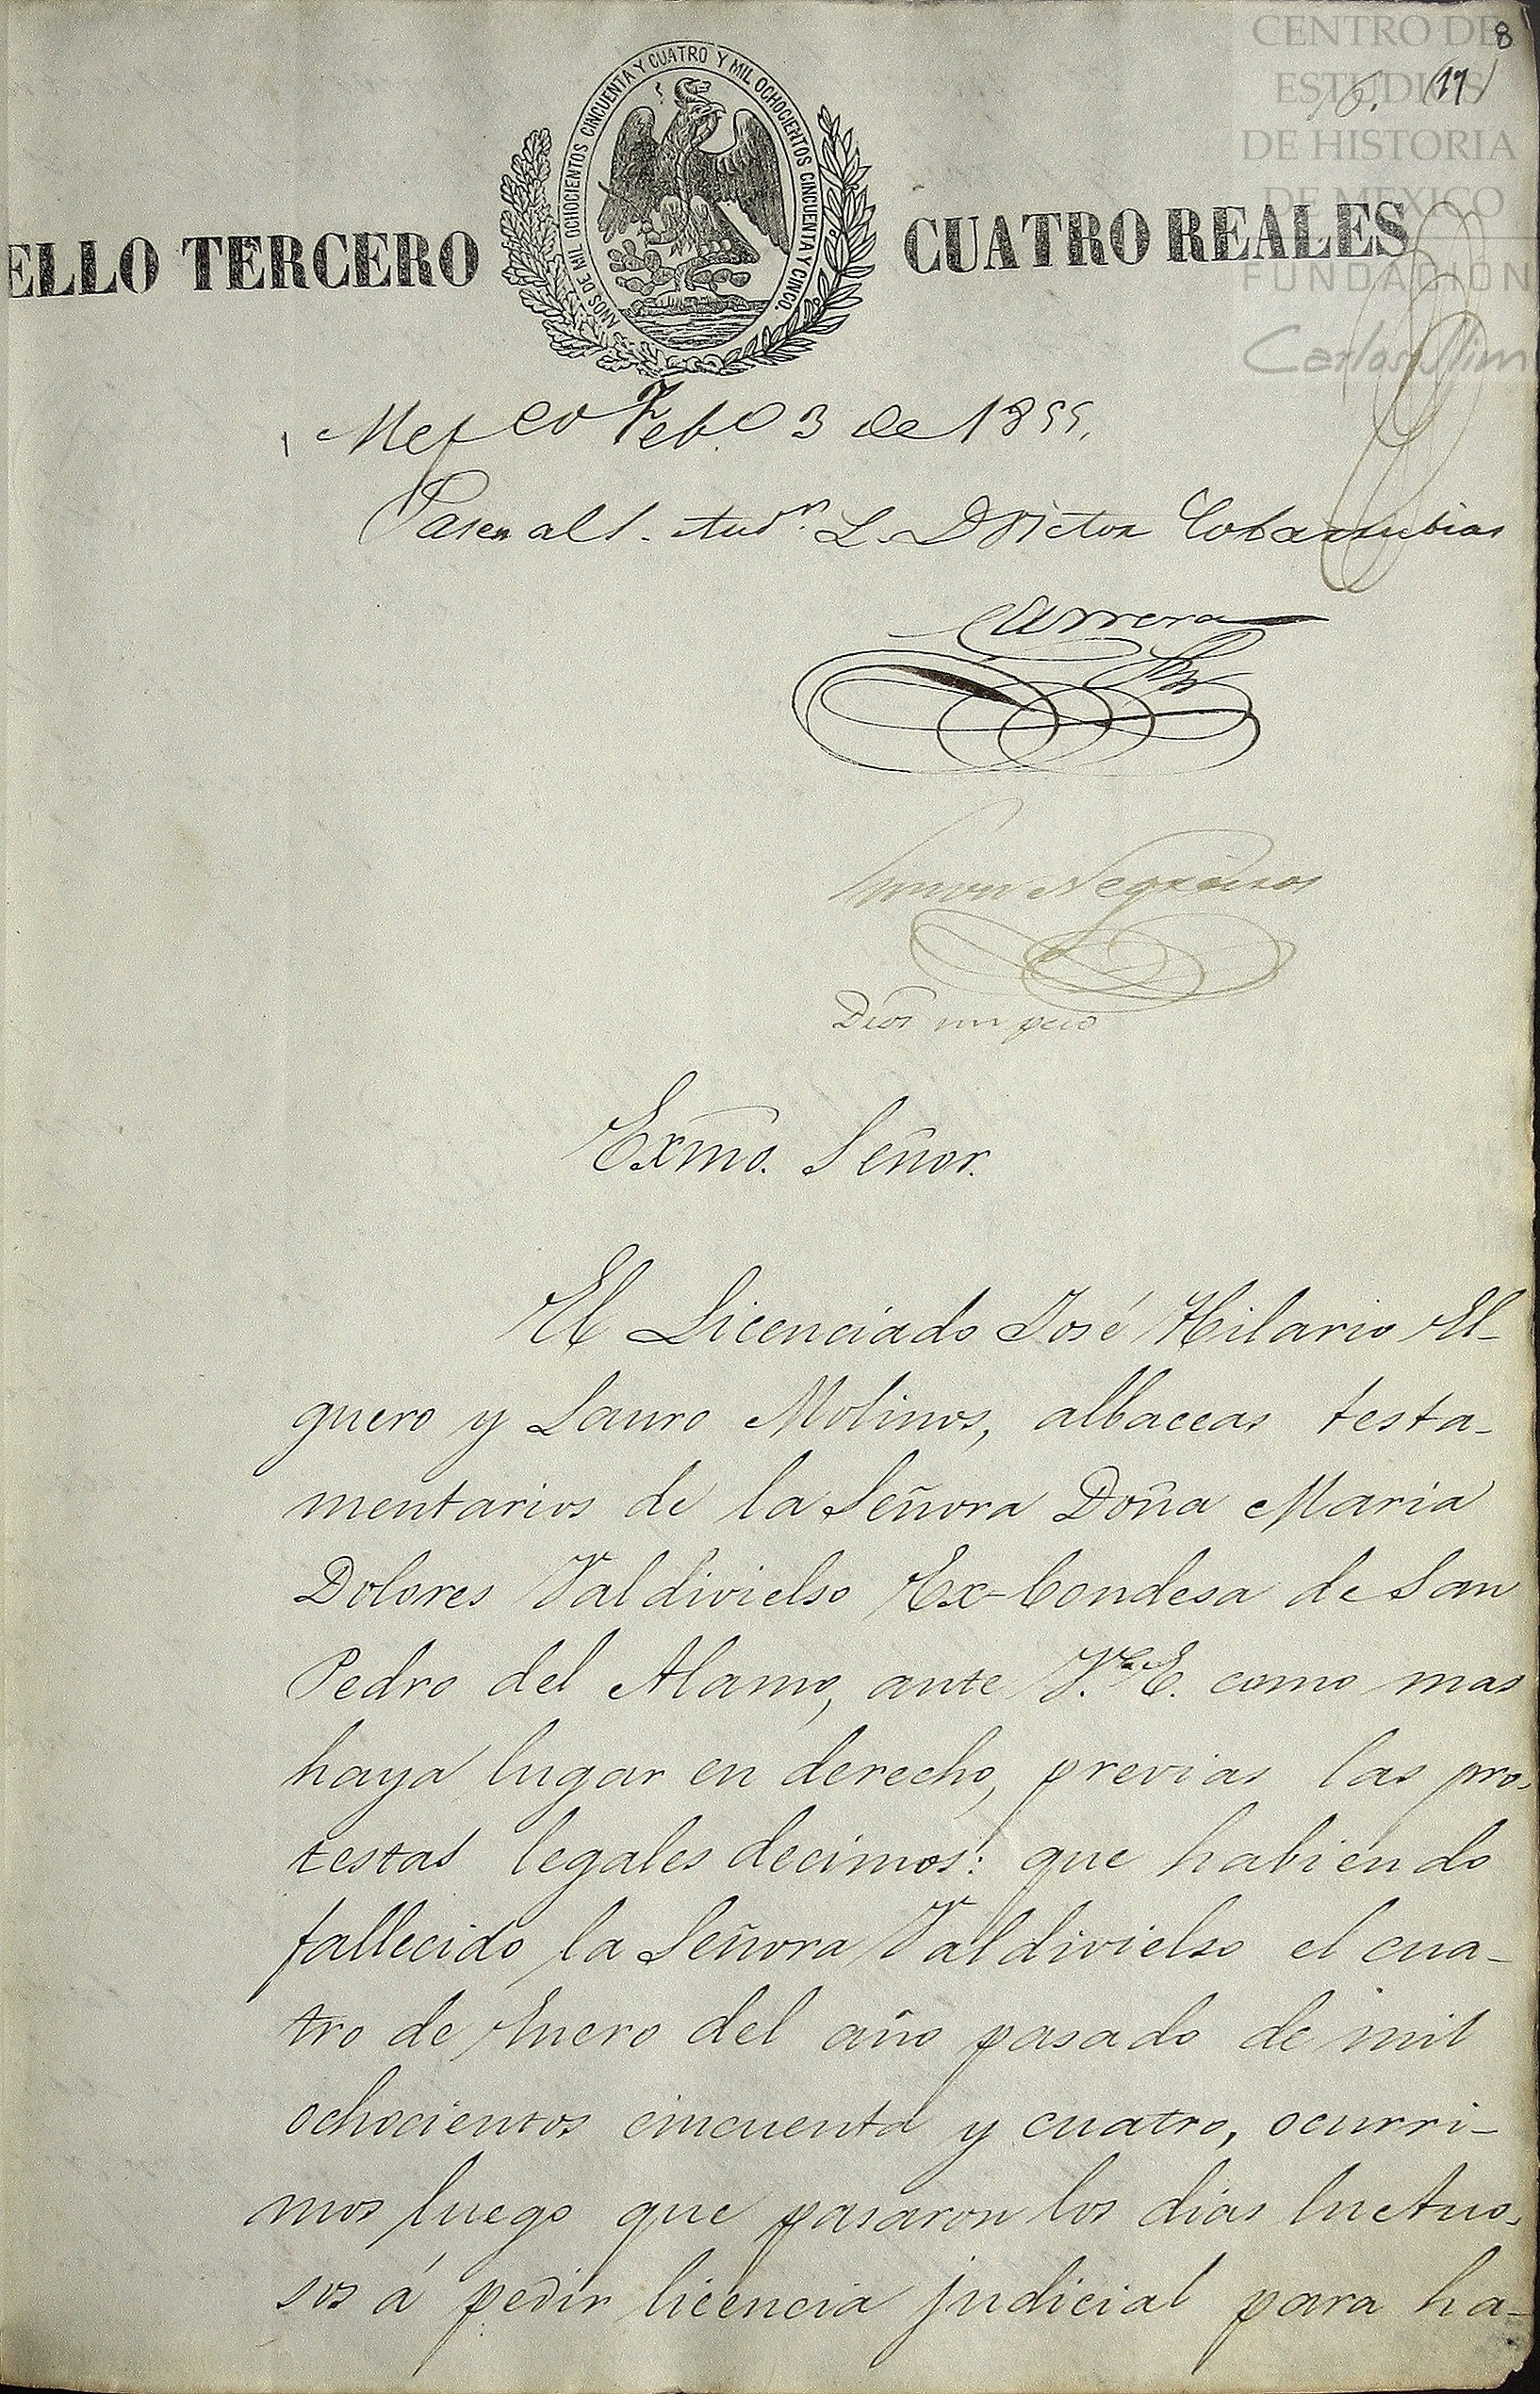 CENTRO DE
ESTUDIOS
DE HISTORIA
DE MEXICO
FUNDACION
Carlos Slim
8
(17)
AÑOS DE MIL OCHOCIENTOS CINCUENTA Y CUATRO Y MIL OCHOCIENTOS CINCUENTA Y CINCO.
ELLO TERCERO CUATRO REALES
Mexco Febo 3 de 1855.
Pasen al S. Audr. L. D Victor Cobarrubias
Carrera
Negreiros
Dros un peso
Exmo. Señor.
El Licenciado José Hilario El-
guero y Lauro Molinos, albaceas testa-
mentarios de la Señora Doña Maria
Dolores Valdivielso Ex-Condesa de San
Pedro del Alamo, ante V.E. como mas
haya lugar en derecho, previas las pro-
testas legales decimos: que habiendo
fallecido la Señora Valdivielso el cua-
tro de Enero del año pasado de mil
ochocientos cincuenta y cuatro, ocurri-
mos luego que pasaron los dias luctuo-
sos á pedir licencia judicial para ha-